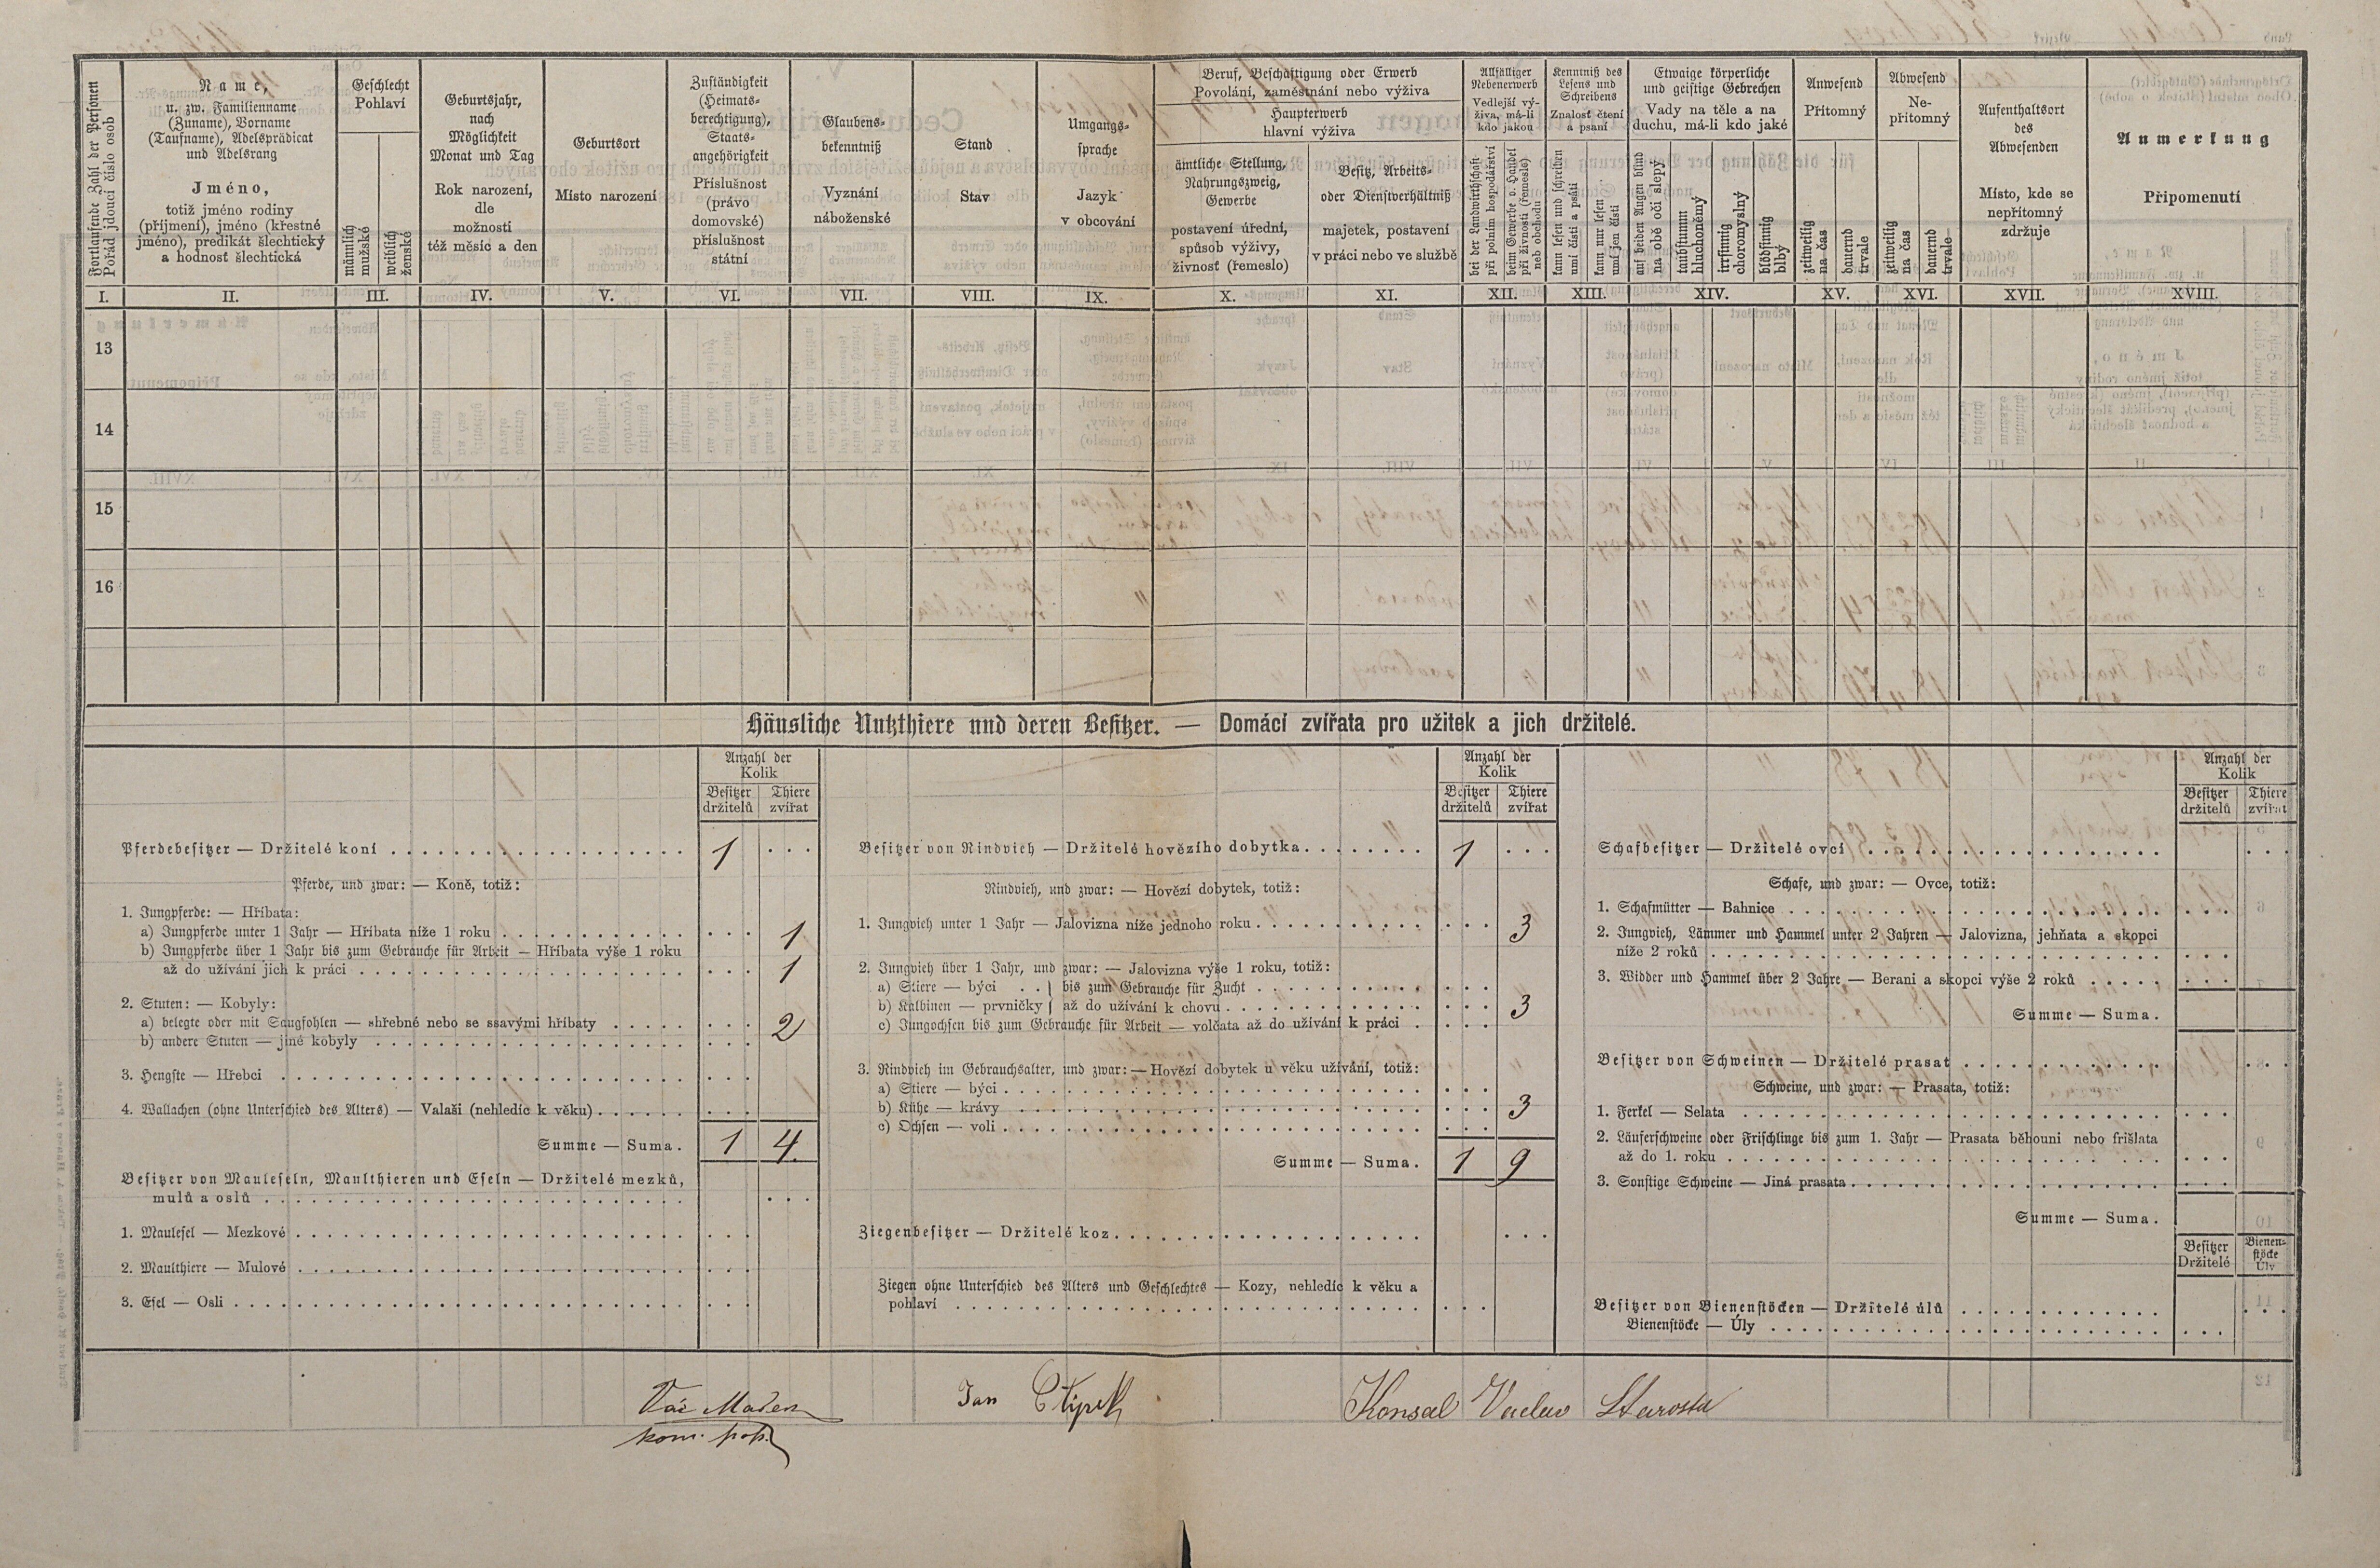 Fortlaufende Zahl der Personen
Pořád jdoucí číslo osob
Name,
u. zw. Familienname
(Zuname), Vorname
(Taufname), Adelsprädicat
und Adelsrang
Jméno,
totiž jméno rodiny
(příjmení), jméno (křestné
jméno), predikát šlechtický
a hodnosť šlechtická
Geschlecht
Pohlaví
männlich
mužské
weiblich
ženské
Geburtsjahr,
nach
Möglichkeit
Monat und Tag
Rok narození,
dle
možnosti
též měsíc a den
Geburtsort
Místo narození
Zuständigkeit
(Heimats-
berechtigung),
Staats-
angehörigkeit
Příslušnost
(právo
domovské)
příslušnost
státní
Glaubens-
bekenntniß
Vyznání
náboženské
Stand
Stav
Umgangs-
sprache
Jazyk
v obcování
Beruf, Beschäftigung oder Erwerb
Povolání, zaměstnání nebo výživa
Haupterwerb
hlavní výživa
ämtliche Stellung,
Nahrungszweig,
Gewerbe
postavení úřední,
spůsob výživy,
živnosť (řemeslo)
Besitz, Arbeits-
oder Dienstverhältniß
majetek, postavení
v práci nebo ve službě
Allfälliger
Nebenerwerb
Vedlejší vý-
živa, má-li
kdo jakou
bei der Landwirthschaft
při polním hospodářství
beim Gewerbe o. Handel
při živnosti (řemesle)
neb obchodu
Kenntniß des
Lesens und
Schreibens
Znalosť čtení
a psaní
kann lesen und schreiben
umí čísti a psáti
kann nur lesen
umí jen čísti
Etwaige körperliche
und geistige Gebrechen
Vady na těle a na
duchu, má-li kdo jaké
auf beiden Augen blind
na obě oči slepý
taubstumm
hluchoněmý
irrsinnig
choromyslný
blödsinnig
blbý
Anwesend
Přítomný
zeitweilig
na čas
dauernd
trvale
Abwesend
Ne-
přítomný
zeitweilig
na čas
dauernd
trvale
Aufenthaltsort
des
Abwesenden
Místo, kde se
nepřítomný
zdržuje
Anmerkung
Připomenutí
I. II. III. IV. V. VI. VII. VIII. IX. X. XI. XII. XIII. XIV. XV. XVI. XVII. XVIII.
13
14
15
16
Häusliche Nutzthiere und deren Besitzer. — Domácí zvířata pro užitek a jich držitelé.
Anzahl der
Kolik
Besitzer Thiere
držitelů zvířat
Pferdebesitzer — Držitelé koní 1
Pferde, und zwar: — Koně, totiž:
1. Jungpferde: — Hříbata:
a) Jungpferde unter 1 Jahr — Hříbata níže 1 roku 1
b) Jungpferde über 1 Jahr bis zum Gebrauche für Arbeit — Hříbata výše 1 roku
až do užívání jich k práci 1
2. Stuten: — Kobyly:
a) belegte oder mit Saugfohlen — shřebné nebo se ssavými hříbaty 2
b) andere Stuten — jiné kobyly
3. Hengste — Hřebci
4. Wallachen (ohne Unterschied des Alters) — Valaši (nehledíc k věku)
Summe — Suma. 1 4.
Besitzer von Mauleseln, Maulthieren und Eseln — Držitelé mezků,
mulů a oslů
1. Maulesel — Mezkové
2. Maulthiere — Mulové
3. Esel — Osli
Anzahl der
Kolik
Besitzer Thiere
držitelů zvířat
Besitzer von Rindvieh — Držitelé hovězího dobytka 1
Rindvieh, und zwar: — Hovězí dobytek, totiž:
1. Jungvieh unter 1 Jahr — Jalovizna níže jednoho roku 3
2. Jungvieh über 1 Jahr, und zwar: — Jalovizna výše 1 roku, totiž:
a) Stiere — býci . . } bis zum Gebrauche für Zucht
b) Kalbinen — prvničky } až do užívání k chovu 3
c) Jungochsen bis zum Gebrauche für Arbeit — volčata až do užívání k práci
3. Rindvieh im Gebrauchsalter, und zwar: — Hovězí dobytek u věku užívání, totiž:
a) Stiere — býci
b) Kühe — krávy 3
c) Ochsen — voli
Summe — Suma. 1 9
Ziegenbesitzer — Držitelé koz
Ziegen ohne Unterschied des Alters und Geschlechtes — Kozy, nehledíc k věku a
pohlaví
Anzahl der
Kolik
Besitzer Thiere
držitelů zvířat
Schafbesitzer — Držitelé ovcí
Schafe, und zwar: — Ovce, totiž:
1. Schafmütter — Bahnice
2. Jungvieh, Lämmer und Hammel unter 2 Jahren — Jalovizna, jehňata a skopci
níže 2 roků
3. Widder und Hammel über 2 Jahre — Berani a skopci výše 2 roků
Summe — Suma.
Besitzer von Schweinen — Držitelé prasat
Schweine, und zwar: — Prasata, totiž:
1. Ferkel — Selata
2. Läuferschweine oder Frischlinge bis zum 1. Jahr — Prasata běhouni nebo frišlata
až do 1. roku
3. Sonstige Schweine — Jiná prasata
Summe — Suma.
Besitzer Bienen-
stöcke
Držitelé Úly
Besitzer von Bienenstöcken — Držitelé úlů
Bienenstöcke — Úly
Jan
Konsal Vaclav Starosta